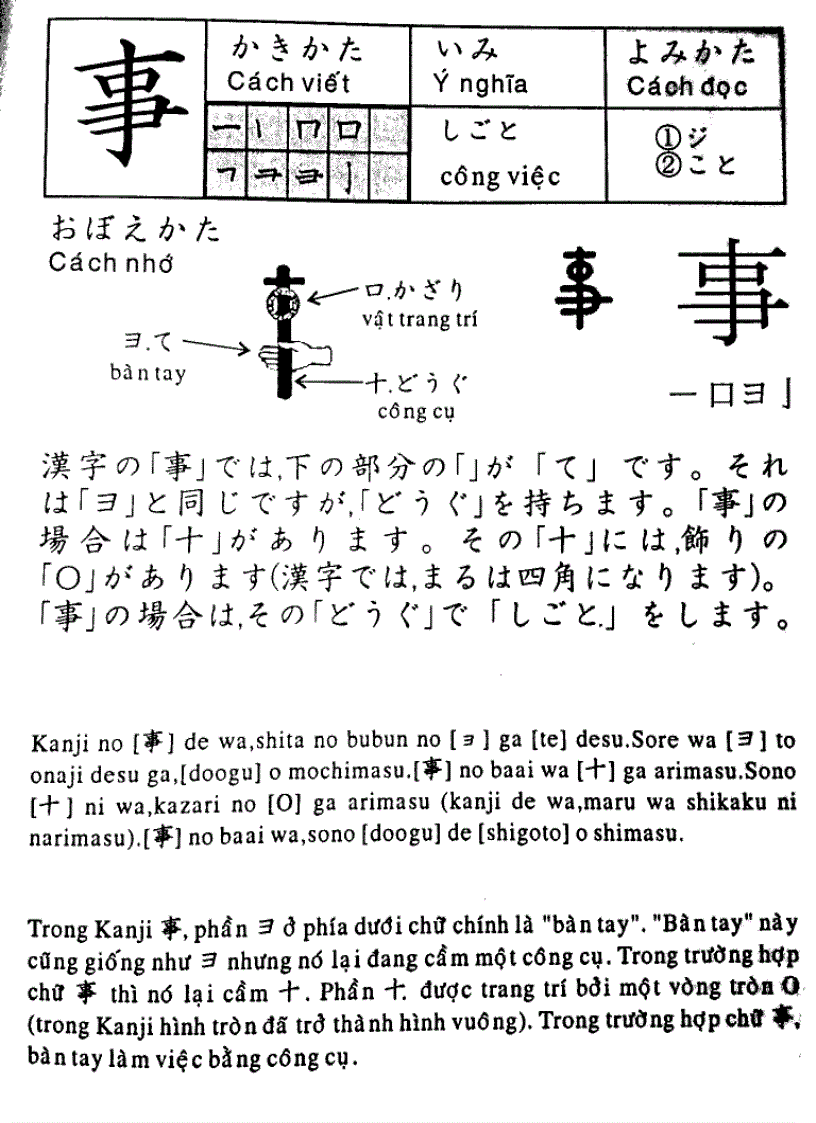 事
かきかた
Cách viết
いみ
Ý nghĩa
よみかた
Cách đọc
しごと
công việc
①ジ
②こと
おぼえかた
Cách nhớ
ロ.かざり
vật trang trí
ヨ.て
bàn tay
十.どうぐ
công cụ
事
一口ヨ亅
漢字の「事」では,下の部分の「」が「て」です。それ
は「ヨ」と同じですが,「どうぐ」を持ちます。「事」の
場合は「十」があります。その「十」には,飾りの
「○」があります(漢字では,まるは四角になります)。
「事」の場合は,その「どうぐ」で「しごと.」をします。
Kanji no [事] de wa,shita no bubun no [ヨ] ga [te] desu.Sore wa [ヨ] to
onaji desu ga,[doogu] o mochimasu.[事] no baai wa [十] ga arimasu.Sono
[十] ni wa,kazari no [O] ga arimasu (kanji de wa,maru wa shikaku ni
narimasu).[事] no baai wa,sono [doogu] de [shigoto] o shimasu.
Trong Kanji 事, phần ヨ ở phía dưới chữ chính là "bàn tay". "Bàn tay" này
cũng giống như ヨ nhưng nó lại đang cầm một công cụ. Trong trường hợp
chữ 事 thì nó lại cầm 十. Phần 十. được trang trí bởi một vòng tròn O
(trong Kanji hình tròn đã trở thành hình vuông). Trong trường hợp chữ 事,
bàn tay làm việc bằng công cụ.